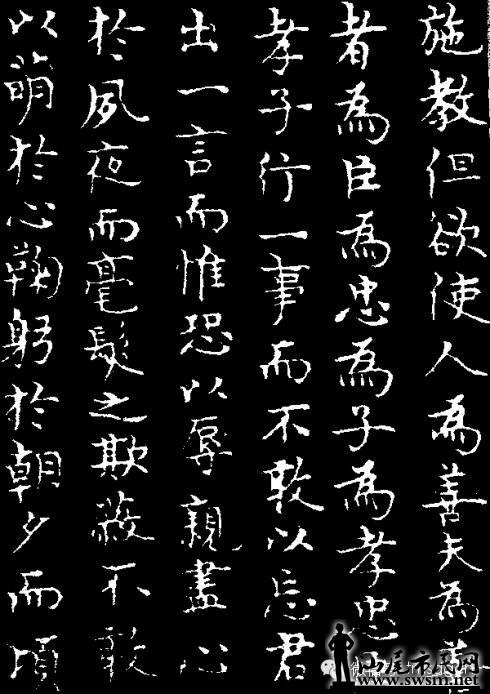 施教但欲使人為善夫為善
者為臣為忠為子為孝忠
孝子行一事而不敢以忘君
出一言而惟恐以辱親盡心
於夙夜而毫髮之欺蔽不敢
以萌於心鞠躬於朝夕而頃
汕尾市民网
www.swsm.net